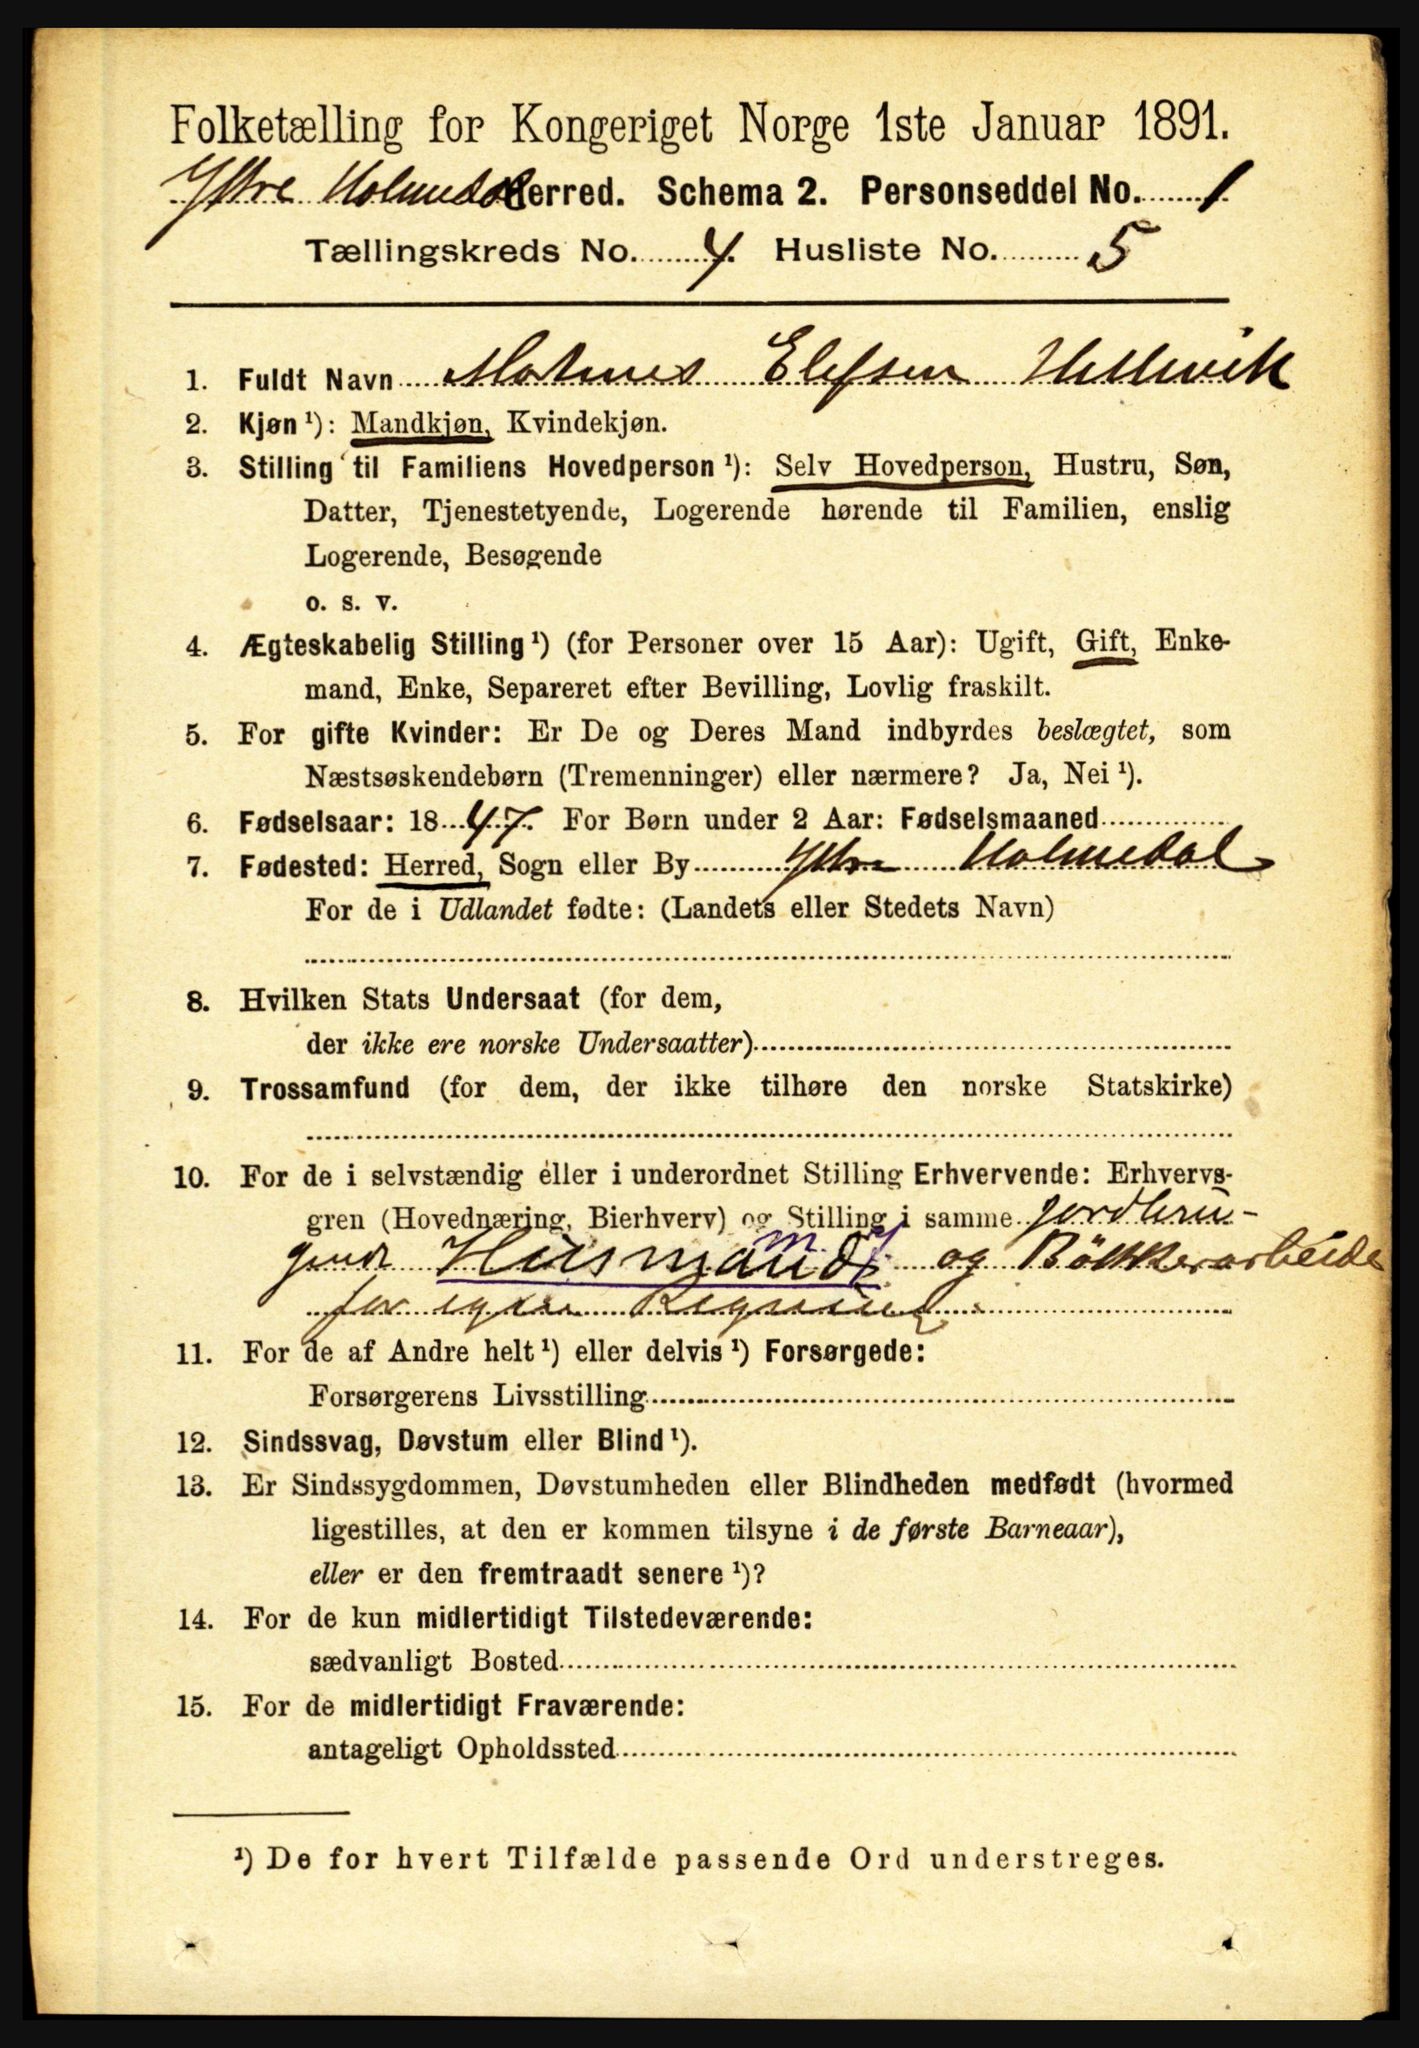 Folketælling for Kongeriget Norge 1ste Januar 1891.
Ytre Holmedal Herred. Schema 2. Personseddel No. 1
Tællingskreds No. 4. Husliste No. 5
1. Fuldt Navn Elefsen Hellevik
2. Kjøn ¹): Mandkjøn, Kvindekjøn.
3. Stilling til Familiens Hovedperson ¹): Selv Hovedperson, Hustru, Søn,
Datter, Tjenestetyende, Logerende hørende til Familien, enslig
Logerende, Besøgende
o. s. v.
4. Ægteskabelig Stilling ¹) (for Personer over 15 Aar): Ugift, Gift, Enke-
mand, Enke, Separeret efter Bevilling, Lovlig fraskilt.
5. For gifte Kvinder: Er De og Deres Mand indbyrdes beslægtet, som
Næstsøskendebørn (Tremenninger) eller nærmere? Ja, Nei ¹).
6. Fødselsaar: 1847. For Børn under 2 Aar: Fødselsmaaned
7. Fødested: Herred, Sogn eller By Ytre Holmedal
For de i Udlandet fødte: (Landets eller Stedets Navn)
8. Hvilken Stats Undersaat (for dem,
der ikke ere norske Undersaatter)
9. Trossamfund (for dem, der ikke tilhøre den norske Statskirke)
10. For de i selvstændig eller i underordnet Stilling Erhvervende: Erhvervs-
gren (Hovednæring, Bierhverv) og Stilling i samme jordbru-
gende Husmand og Bökkerarbeide
for egen Regning.
11. For de af Andre helt ¹) eller delvis ¹) Forsørgede:
Forsørgerens Livsstilling
12. Sindssvag, Døvstum eller Blind ¹).
13. Er Sindssygdommen, Døvstumheden eller Blindheden medfødt (hvormed
ligestilles, at den er kommen tilsyne i de første Barneaar),
eller er den fremtraadt senere ¹)?
14. For de kun midlertidigt Tilstedeværende:
sædvanligt Bosted
15. For de midlertidigt Fraværende:
antageligt Opholdssted
¹) De for hvert Tilfælde passende Ord understreges.